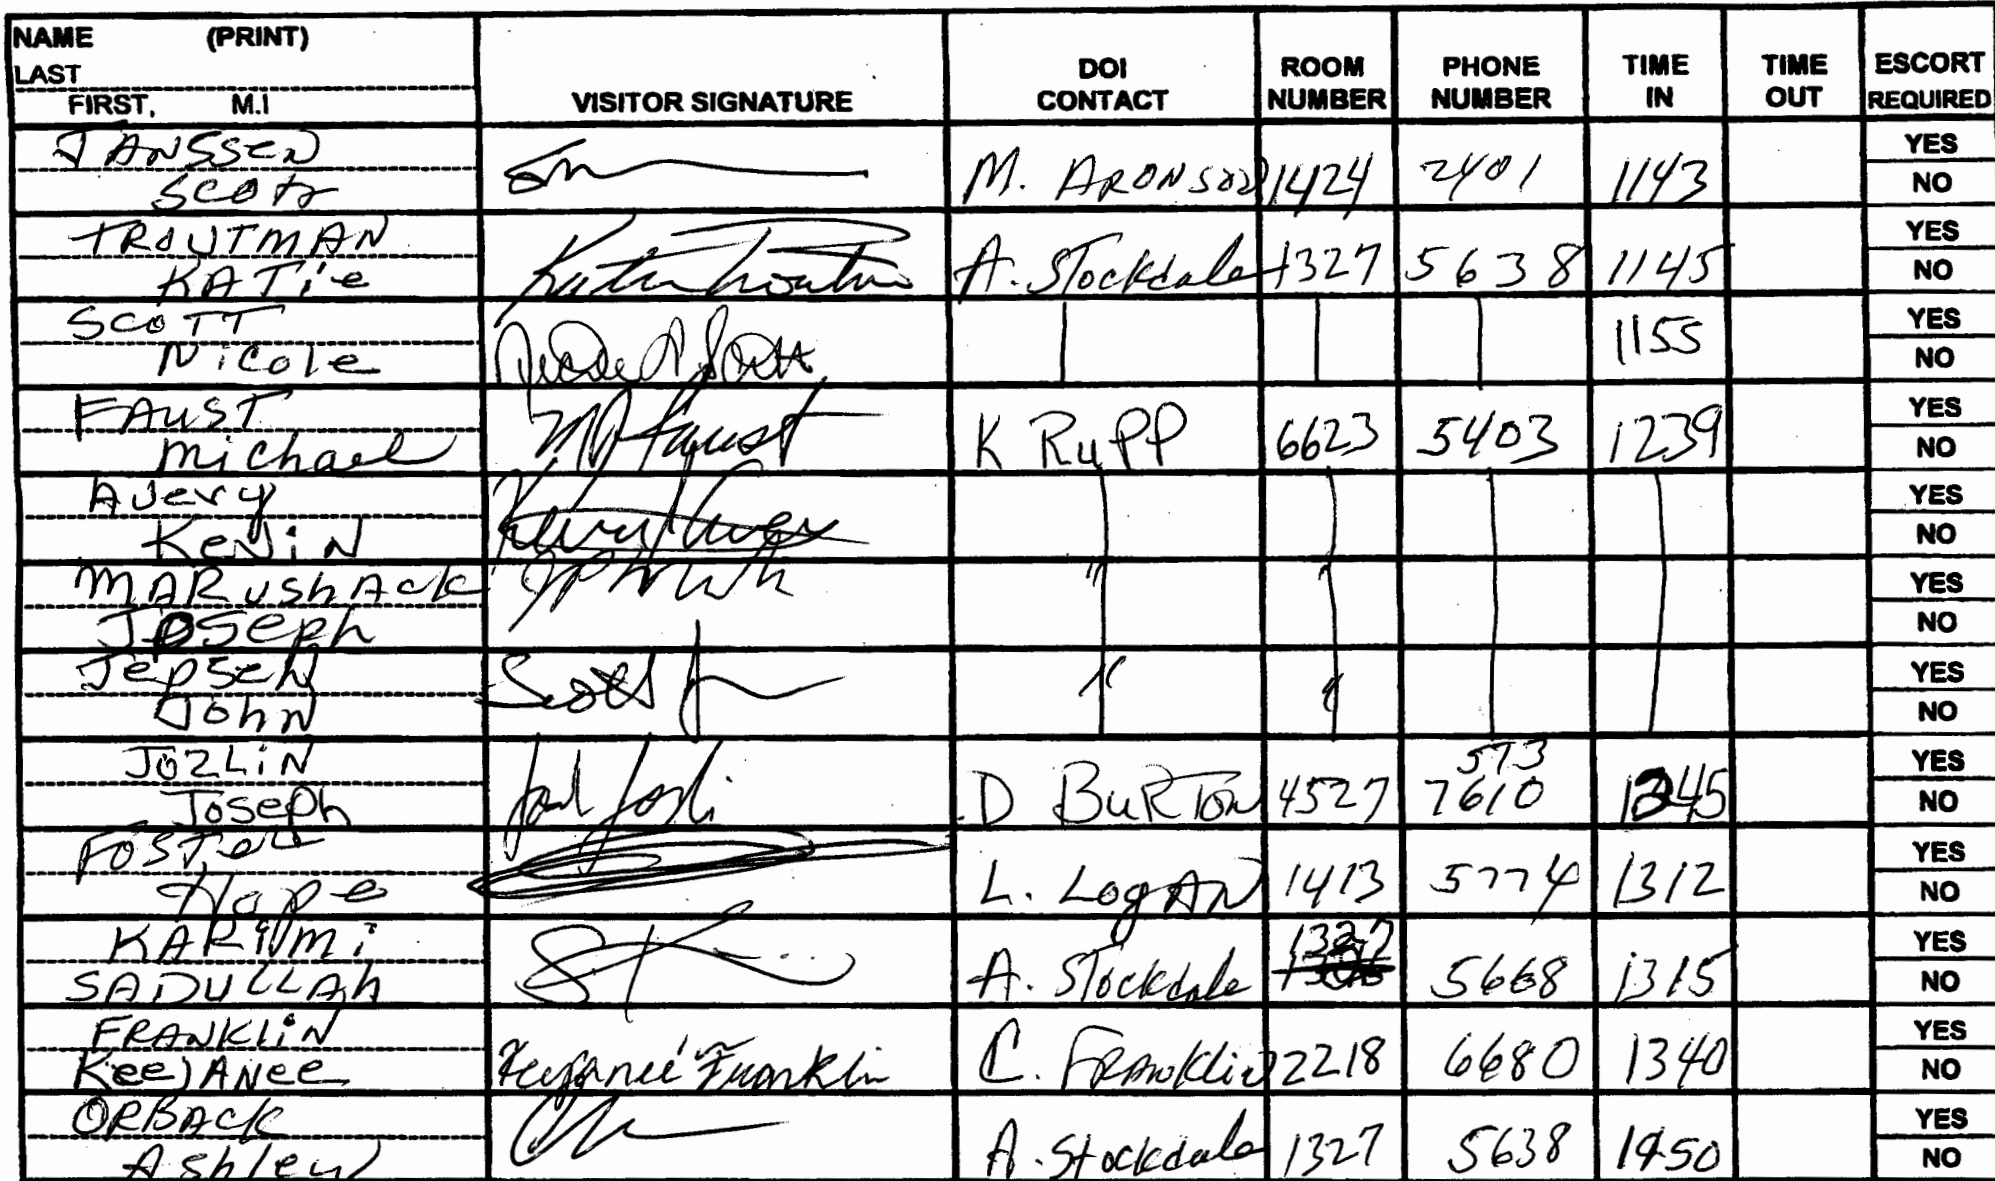 NAME (PRINT)
LAST
FIRST, M.I
VISITOR SIGNATURE
DOI CONTACT
ROOM NUMBER
PHONE NUMBER
TIME IN
TIME OUT
ESCORT REQUIRED
JANSSEN
SCOTT
M. ARONSON 1424 2401 1143 YES
NO
TROUTMAN
KATie
A. Stockdale 1327 5638 1145 YES
NO
SCOTT
Nicole
1155 YES
NO
FAUST
Michael
M Faust
K RuPP 6623 5403 1239 YES
NO
Avery
KeViN
YES
NO
MARushAck
JOSeph
" YES
NO
Jepsen
John
Scott
" YES
NO
JOZLiN
Joseph
D BuRTon 4527 573 7610 1245 YES
NO
FOSTer
Hope
L. LogAN 1413 5774 1312 YES
NO
KARiMi
SADULLAh
A. Stockdale 1327 5668 1315 YES
NO
FRANKLiN
KeeJANee
Keejanee Franklin
C. FRANKlin 2218 6680 1340 YES
NO
ORBAck
Ashley
A. Stockdale 1327 5638 1450 YES
NO